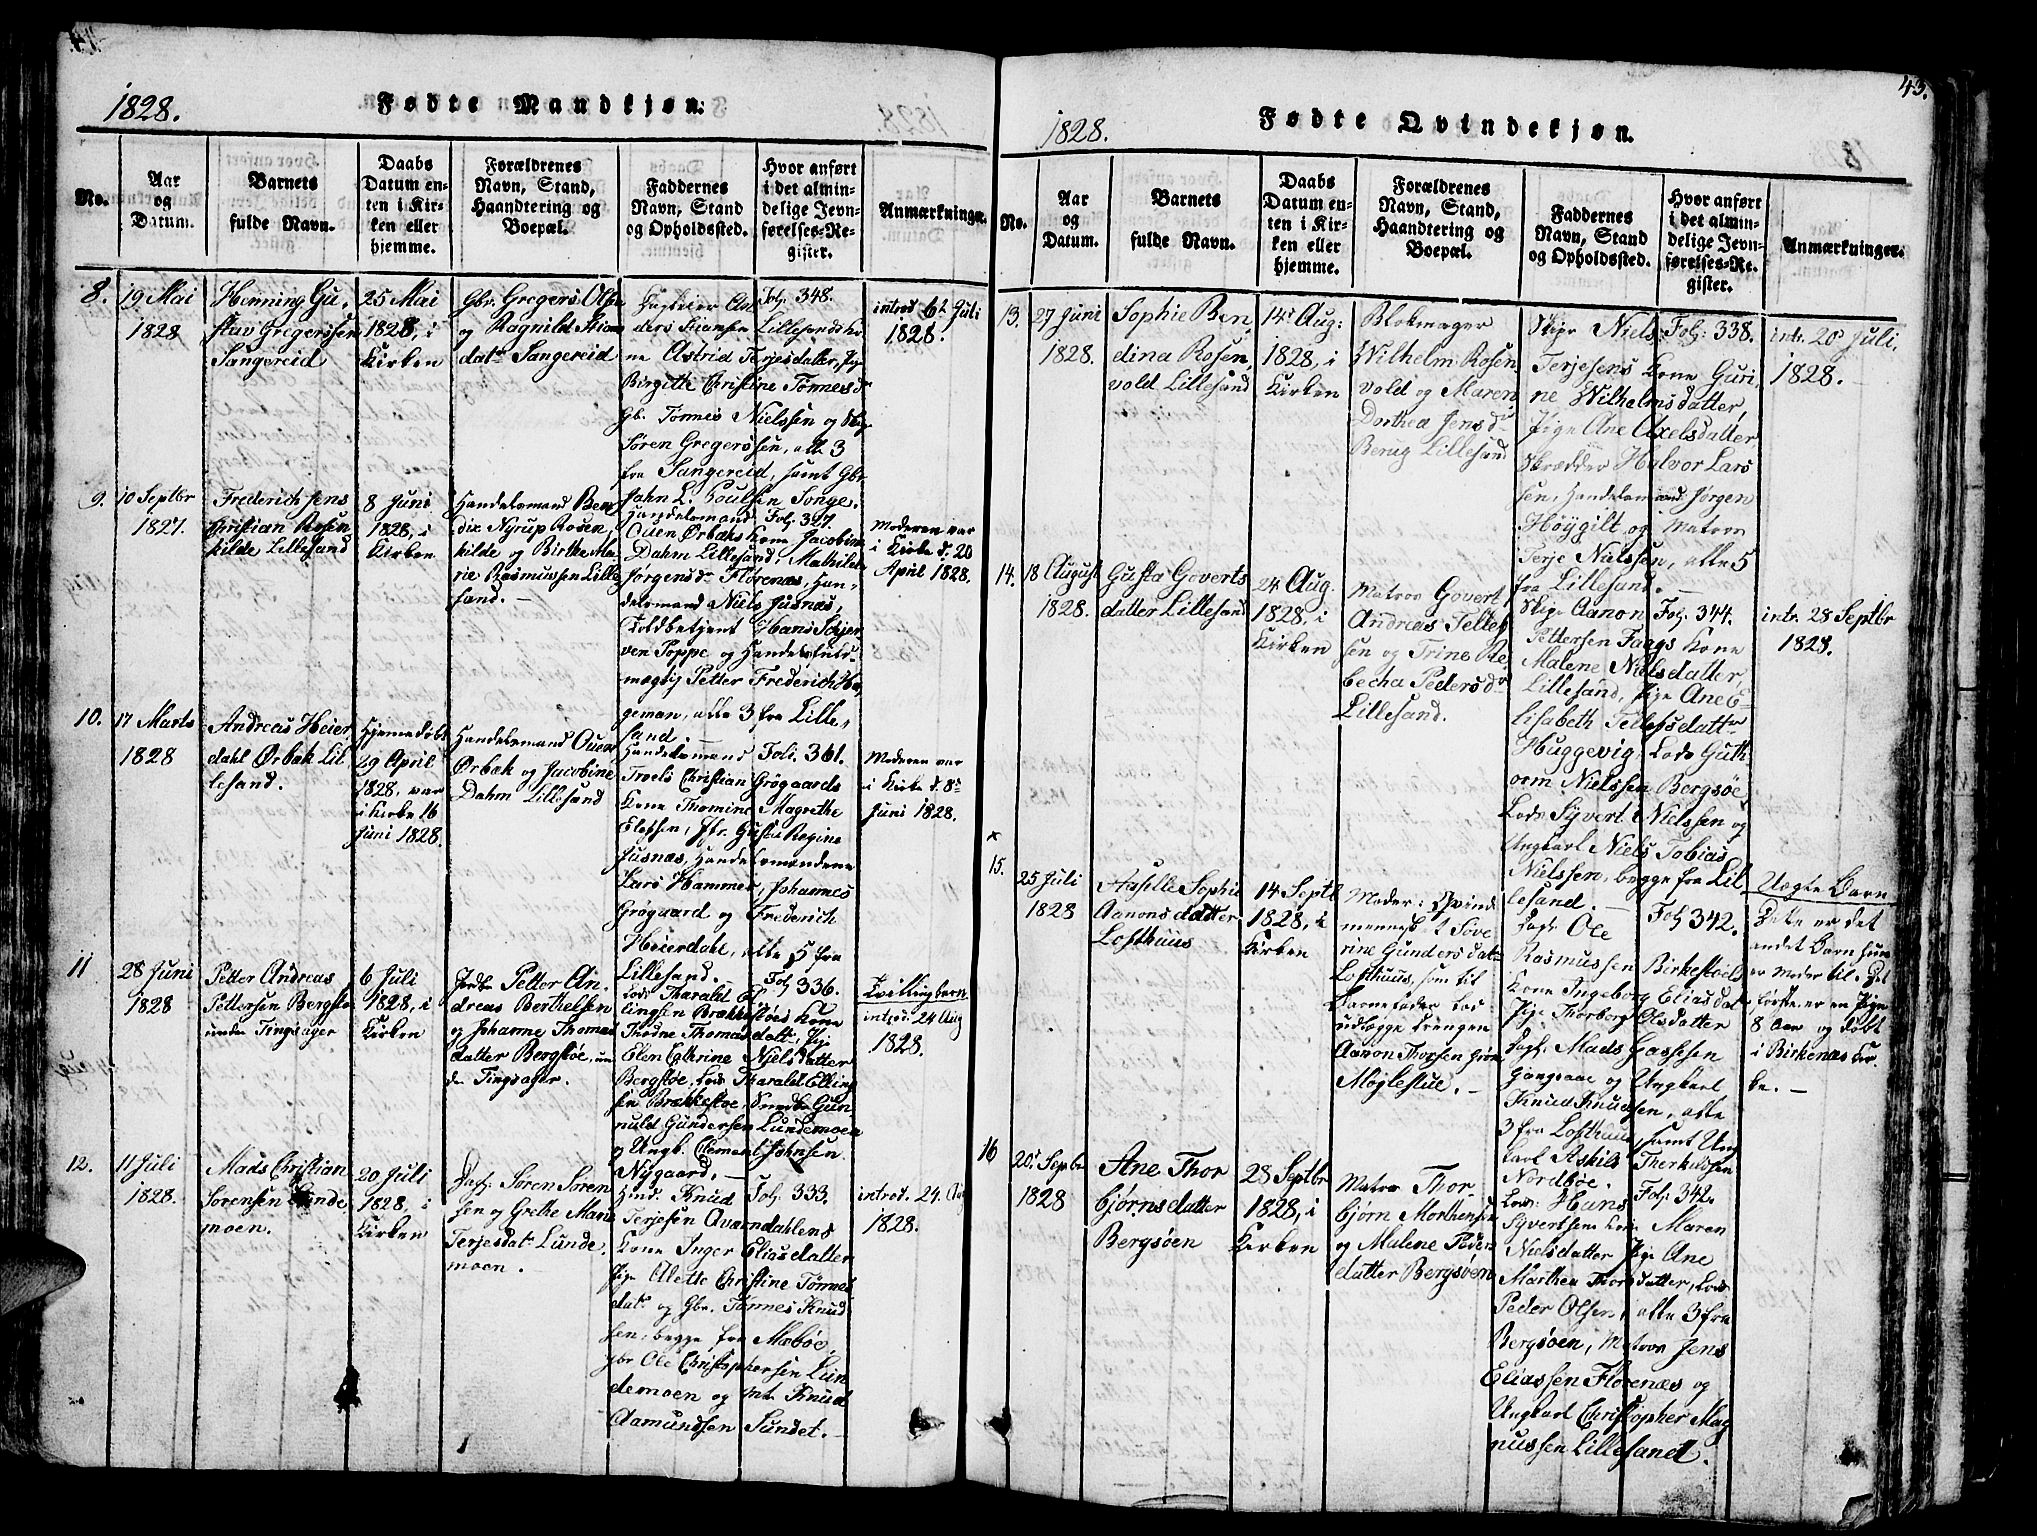 1828.
Fødte Mandkjøn.
No.
Aar
og
Datum.
Barnets
fulde Navn.
Daabs
Datum en-
ten i Kir-
ken eller
hjemme.
Forældrenes
Navn, Stand,
Haandtering og
Boepæl.
Faddernes
Navn, Stand
og Opholdssted.
Hvor anført
i det almin-
delige Jevn-
førelses-Re-
gister.
Anmærkninger.
8.
19 Mai
1828
Henning Gu-
stav Gregerssen
Sangereid
25 Mai
1828, i
Kirken
Gbr. Gregers Olsen
og Ragnild
datr Sangereid
Lillesands ko-
ne Astrid Terjesdatter, Pige
Birgitte Christine Tønnesdr
Gb. Tønnes Nielssen og
Søren Gregerssen, alle 3
fra Sangereid, samt Gbr
John L. Poulsen Songe.
Fol. 348.
introd. 6te Juli
1828.
9.
10 Septbr
1827.
Frederich Jens
Christian Rosen
kilde Lillesand
8 Juni
1828, i
Kirken
Handelsmand Ben
dix Nyrup Rosen
kilde og Birthe Ma
rie Rasmussen Lille
sand.
Handelsmand
Ouen Ørbeks kone Jacobine
Dahm Lillesand, Mathilde
Jørgensdr Florenæs, Han-
delsmand Niels Jusnæs,
Toldbetjent Hans Schjer
ven Poppe og Handelsfuld-
mægtig Petter Frederich Ha-
geman, alle 3 fra Lille-
sand
Fol. 327.
Moderen var
i Kirke d. 20
April 1828.
10.
17 Marts
1828
Andreas Heier
dahl Ørbæk Lil
lesand.
Hjemmedøbt
29 April
1828, var
i Kirke 16
Juni 1828.
Handelsmand Ouen
Ørbæk og Jacobine
Dahm Lillesand
Handelsmand
Troels Christian Grøgaards
Kone Thomine Magrethe
Elefsen, Jfr. Gusta Regine
Jusnæs, Handelsmændene
Lars Hammer, Johannes
Grøgaard og Frederich
Heierdahl, alle 5 fra
Lillesand.
Fol. 361.
Moderen var
i Kirke d. 8de
Juni 1828.
11
28 Juni
1828
Petter Andreas
Pettersen Bergstø
under Tingsager
6 Juli
1828, i
Kirken
Petter An
dreas Berthelsen
og Johanne Thomas
datter Bergstøe, un
der Tingsager.
Lods Tharald El
lingsen Brækkestøes Kone
Thomasdatt., Pige
Elen Cathrine Nielsdatter
Bergstøe, Lods Tharald Elling
sen Brækkestøe, Gun-
nuld Gundersen Lundemoen
og Ungk. Clement Johnsen
Nygaard,
Fol 336.
Tvillingbarn
introd. 24 Aug
1828.
12.
11 Juli
1828.
Mads Christian
Sørensen Lunde
moen.
20 Juli
1828, i
Kirken
Søren Søren
sen og Grethe Marie
Terjesdatr Lunde
moen.
Knud
Terjesen Qværndahlens
Kone Inger Eliasdatter
Pige Alette Christine Tønnes
datr og Gbr. Tønnes Knud
sen, begge fra Mæbøe,
gbr Ole Christophersen Lun
demoen og Knud
Aamundsen Sundet.
Fol. 333.
introd. 24. Aug
1828.
43.
1828.
Fødte Qvindekjøn.
No.
Aar
og
Datum.
Barnets
fulde Navn.
Daabs
Datum en-
ten i Kir-
ken eller
hjemme.
Forældrenes
Navn, Stand,
Haandtering og
Boepæl.
Faddernes
Navn, Stand
og Opholdssted.
Hvor anført
i det almin-
delige Jevn-
førelses-Re-
gister.
Anmærkninger.
13.
27 Juni
1828.
Sophie Ben
dina Rosen
vold Lillesand
14de Aug:
1828, i
Kirken
Blokmager
Wilhelm Rosen
vold og Maren
Dorthea Jensdr
Berug Lillesand
Niels
Terjesens Kone Guri
ne Wilhelmsdatter,
Pige Ane Axelsdatter
Skrædder Halvor Lars
sen, Handelsmand Jørgen
Høygilt og Matros
Terje Nielssen, alle 5
fra Lillesand.
Fol: 338.
intr. 20de Juli
1828.
14.
18 August
1828.
Gusta Goverts
datter Lillesand
24 Aug.
1828, i
Kirken
Matros Govert
Andreas Tellef
sen og Trine Re
becha Pedersdr
Lillesand.
Aanon
Pettersen Faags Kone
Malene Nielsdatter
Lillesand, Pige Ane E-
lisabeth Tellefsdatter
Huggevig, Lods Guth
orm Nielssen Bergsøe,
Lods Syvert Nielssen og
Ungkarl Niels Tobias
Nielssen, begge fra Lil
lesand.
Fol. 344.
intr. 28 Septbr
1828.
15.
25 Juli
1828
Aaselle Sophie
Aanonsdatter
Losthuus
14 Septb
1828, i
Kirken
Moder: Qvinde
mennesket Søve
rine Gundersdatr
Losthuus, som til
Barnefader har
udlægge Drengen
Aanon Thorsen
Møglestue.
Ole
Rasmussen Birkestøels
Kone Ingeborg Eliasdat
Pige Thorborg Olsdatter
Mads Gassesen
Gangsaae og Ungkarl
Knud Knudssen, alle
3 fra Losthuus, samt Ung
karl Askild Therkildsen
Nordbøe.
Fol 342.
Uægte Barn
Dette er det
andet Barn hun
er Moder til. Det
første er en Pige
8 Aar og døbt
i Birkenæs Kir
ke.
16
20de Septbr
1828
Ane Thor
bjørnsdatter
Bergsøen
28 Septbr
1828, i
Kirken
Matros Thor
bjørn Morthensen
og Malene
datter Bergsøen
Lods Hans
Syvertsens Kone Maren
Nielsdatter Pige Ane
Marthea Thorsdatter, Lods
Peder Olsen, alle 3 fra
Bergsøen, Matros Jens
Eliassen Florenæs og
Ungkarl Christopher Mag
nussen Lillesand.
Fol. 342.